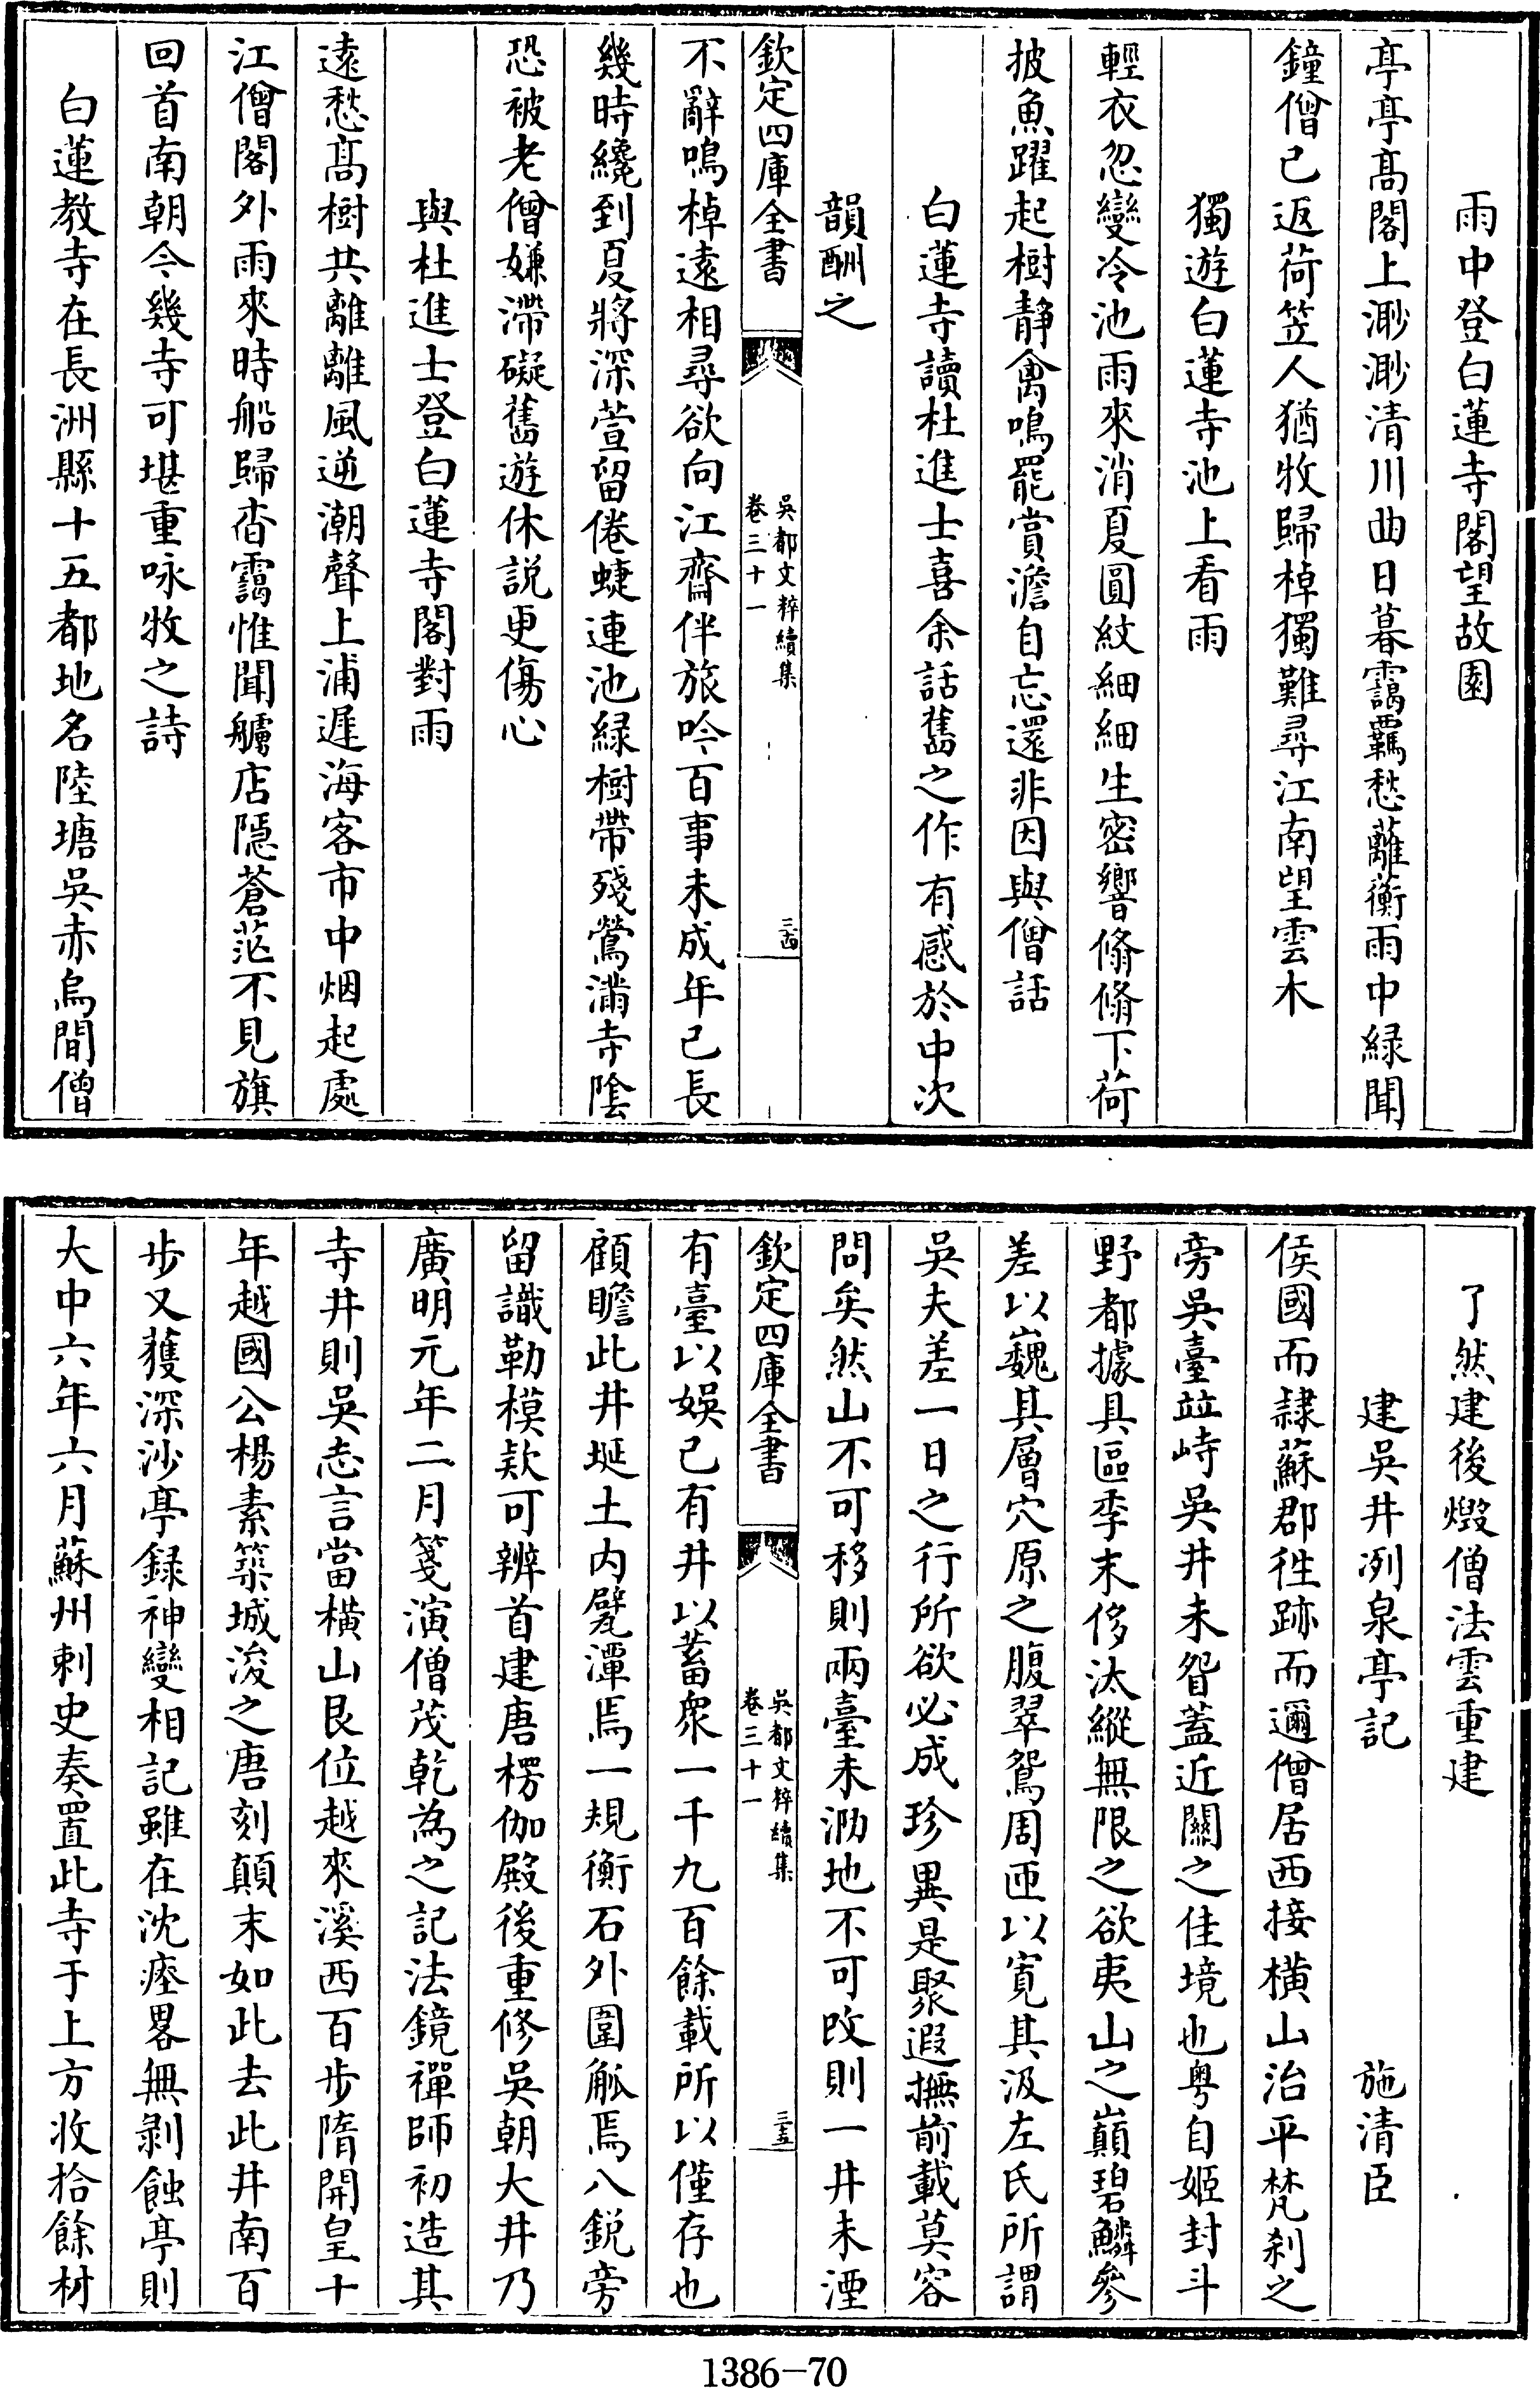 雨中登白蓮寺閣望故園
亭亭髙閣上渺渺清川曲日暮靄羇愁蘺蘅雨中緑聞
鐘僧已返荷笠人猶牧歸棹獨難尋江南望雲木
獨遊白蓮寺池上看雨
輕衣忽變冷池雨來消夏圓紋細細生密響翛翛下荷
披魚躍起樹静禽鳴罷賞澹自忘還非因與僧話
白蓮寺讀杜進士喜余話舊之作有感於中次
韻酬之
欽定四庫全書
吳都文粹續集
卷三十一
三四
不辭鳴棹遠相尋欲向江齋伴旅吟百事未成年已長
幾時纔到夏將深萱留倦蜨連池緑樹帶殘鶯滿寺陰
恐被老僧嫌滯礙舊遊休説更傷心
與杜進士登白蓮寺閣對雨
遠愁髙樹共離離風逆潮聲上浦遲海客市中烟起處
江僧閣外雨來時船歸杳靄惟聞艣店隠蒼茫不見旗
回首南朝今幾寺可堪重咏牧之詩
白蓮教寺在長洲縣十五都地名陸塘吳赤烏間僧
了然建後燬僧法雲重建
建吳井冽泉亭記
施清臣
侯國而隷蘇郡徃跡而邇僧居西接橫山治平梵刹之
旁吳臺竝峙吳井未眢蓋近關之佳境也粤自姬封斗
野都據具區季末侈汰縱無限之欲夷山之巔碧鱗參
差以巍其層穴原之腹翠鴛周匝以寛其汲左氏所謂
吳夫差一日之行所欲必成珍異是聚遐撫前載莫容
問矣然山不可移則兩臺未泐地不可改則一井未湮
欽定四庫全書
吳都文粹續集
卷三十一
三五
有臺以娛已有井以蓄衆一千九百餘載所以僅存也
顧瞻此井埏土内甓潭焉一規衡石外圍觚焉八鋭旁
留識勒模欵可辨首建唐楞伽殿後重修吳朝大井乃
廣明元年二月箋演僧茂乾為之記法鏡禪師初造其
寺井則吳志言當橫山艮位越來溪西百步隋開皇十
年越國公楊素築城浚之唐刻顛末如此去此井南百
步又獲深沙亭録神變相記雖在沈瘞畧無剥蝕亭則
大中六年六月蘇州刺史奏置此寺于上方收拾餘材
1386-70